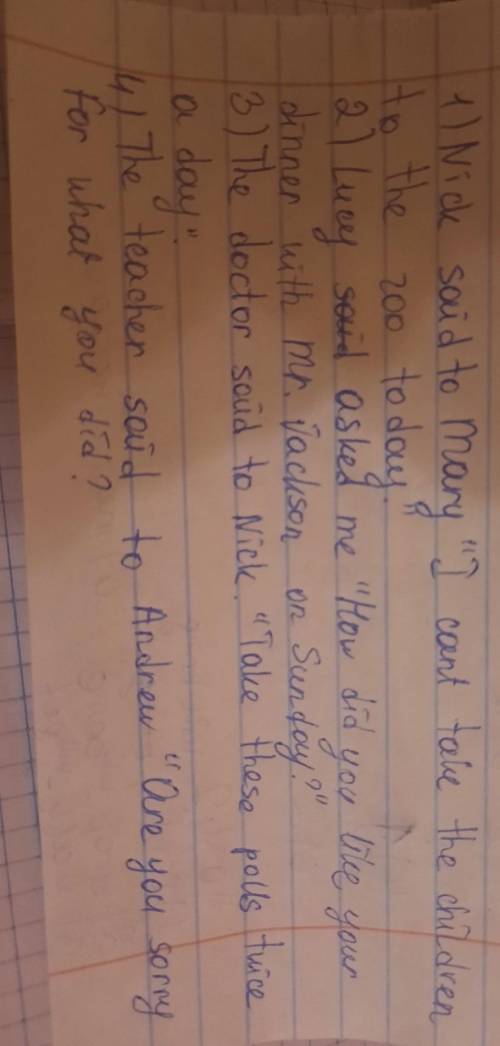 1) Nick said to Mary "I cant take the children
to the zoo today."
2) Lucy said asked me "How did you like your
dinner with Mr. Jackson on Sunday?"
3) The doctor said to Nick. "Take these polls twice
a day".
4) The teacher said to Andrew "Are you sorry
for what you did?